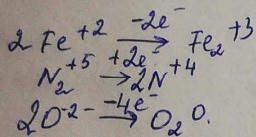 2 Fe⁺² —-2e⁻→ Fe₂⁺³
N₂⁺⁵ —+2e⁻→ 2N⁺⁴
2O⁻²⁻ —-4e⁻→ O₂O.